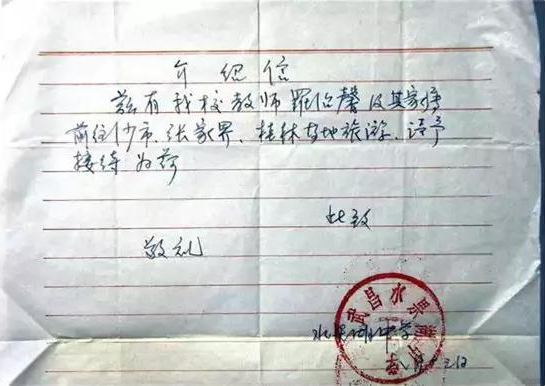 介绍信
兹有我校教师罗伯馨及其家属
前往沙市、张家界、桂林等地旅游、请予
接待为荷
此致
敬礼
武昌水果湖
水果湖中学